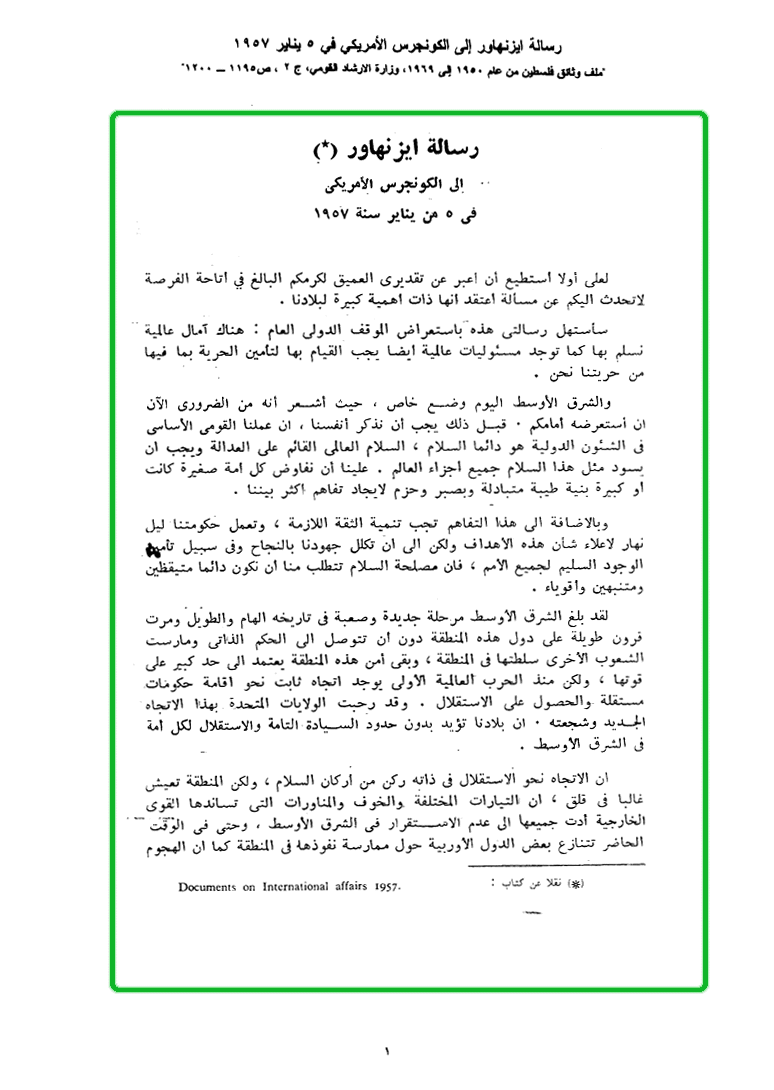 رسالة ايزنهاور إلى الكونجرس الأمريكي في ٥ يناير ١٩٥٧
"ملف وثائق فلسطين من عام ١٩٥٠ إلى ١٩٦٩، وزارة الارشاد القومي، ج ٢ ، ص ١١٩٥ – ١٢٠٠"
رسالة ايزنهاور (*)
الى الكونجرس الأمريكى
فى ٥ من يناير سنة ١٩٥٧
لعلى أولا أستطيع أن أعبر عن تقديرى العميق لكرمكم البالغ في اتاحة الفرصة
لاتحدث اليكم عن مسألة أعتقد انها ذات اهمية كبيرة لبلادنا .
سأستهل رسالتى هذه باستعراض الموقف الدولى العام : هناك آمال عالمية
نسلم بها كما توجد مسئوليات عالمية ايضا يجب القيام بها لتأمين الحرية بما فيها
من حريتنا نحن .
والشرق الأوسط اليوم وضع خاص ، حيث أشعر أنه من الضرورى الآن
ان أستعرضه أمامكم . قبل ذلك يجب أن نذكر أنفسنا ، ان عملنا القومى الأساسى
فى الشئون الدولية هو دائما السلام ، السلام العالمى القائم على العدالة ويجب ان
يسود مثل هذا السلام جميع أجزاء العالم . علينا أن نفاوض كل امة صغيرة كانت
او كبيرة بنية طيبة متبادلة وبصبر وحزم لايجاد تفاهم اكثر بيننا .
وبالاضافة الى هذا التفاهم تجب تنمية الثقة اللازمة ، وتعمل حكومتنا ليل
نهار لاعلاء شأن هذه الأهداف ولكن الى ان تكلل جهودنا بالنجاح وفى سبيل
الوجود السليم لجميع الأمم ، فان مصلحة السلام تتطلب منا أن نكون دائما متيقظين
ومتنبهين وأقوياء .
لقد بلغ الشرق الأوسط مرحلة جديدة وصعبة فى تاريخه الهام والطويل ومرت
قرون طويلة على دول هذه المنطقة دون أن تتوصل الى الحكم الذاتى ومارست
الشعوب الأخرى سلطتها فى المنطقة ، وبقى أمن هذه المنطقة يعتمد الى حد كبير على
قوتها ، ولكن منذ الحرب العالمية الأولى يوجد اتجاه ثابت نحو اقامة حكومات
مستقلة والحصول على الاستقلال . وقد رحبت الولايات المتحدة بهذا الاتجاه
الجديد وشجعته . ان بلادنا تؤيد بدون حدود السيادة التامة والاستقلال لكل أمة
فى الشرق الأوسط .
ان الاتجاه نحو الاستقلال فى ذاته ركن من أركان السلام ، ولكن المنطقة تعيش
غالبا فى قلق ، ان التيارات المختلفة والخوف والمناورات التى تساندها القوى
الخارجية أدت جميعها الى عدم الاستقرار فى الشرق الأوسط ، وحتى فى الوقت
الحاضر تتنازع بعض الدول الأوربية حول ممارسة نفوذها فى المنطقة كما ان الهجوم
(*) نقلا عن كتاب : Documents on International affairs 1957.
١